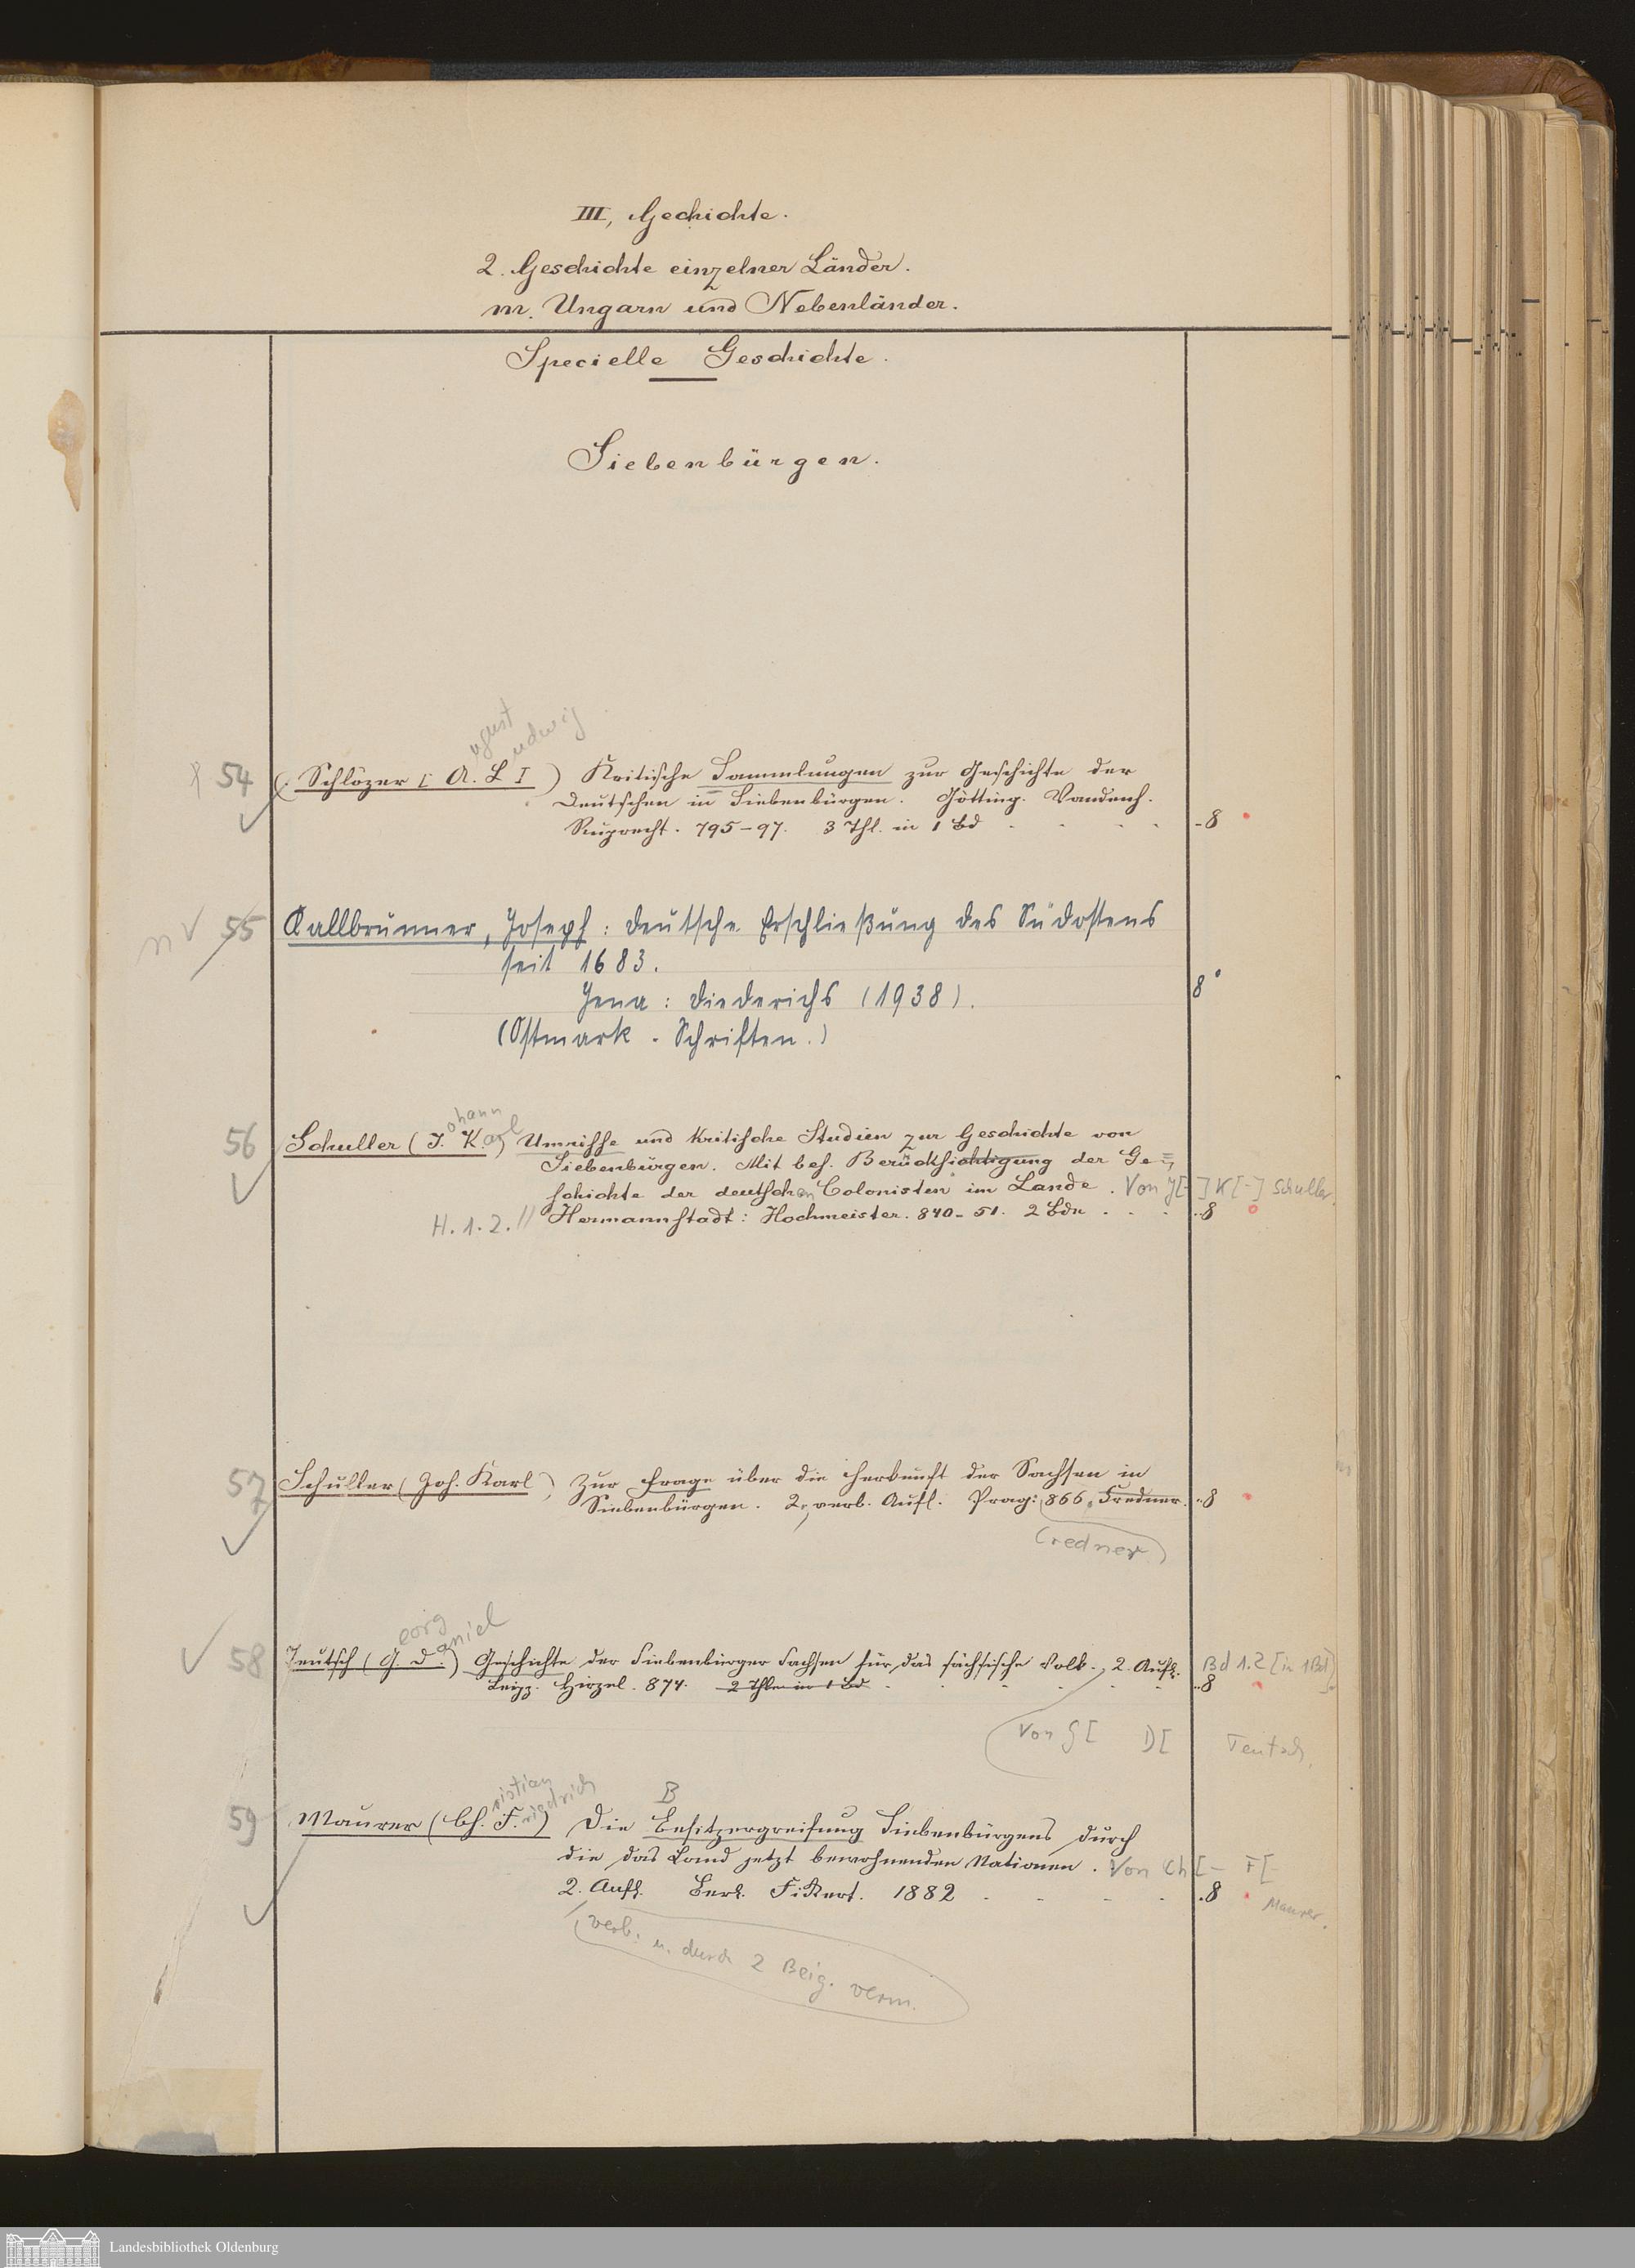 III, Gechichte.
2. Geschichte einzelner Länder.
m. Ungarn und Nebenländer.
Specielle Geschichte.
Siebenbürgen.
ugust udwig
54 (: Schlözer [: A. L ] ) Kritische Sammlungen zur Geschichte der
Deutschen in Siebenbürgen. Götting. Vandenh.
Ruprecht. 795-97. 3 Thl. in 1 Bd - - - - -8
n 55 Kallbrunner, Joseph: Deutsche Erschließung des Südostens
seit 1683.
Jena: Diederichs (1938). 8°
(Ostmark-Schriften.)
ohann
56 Schuller (J. Karl) Umrisse und kritische Studien zur Geschichte von
Siebenbürgen. Mit bes. Berücksichtigung der Ge=
schichte der deutschen Colonisten im Lande. Von J[-] K[-] Schuller.
H. 1. 2. // Hermannstadt: Hochmeister. 840-51. 2 Bde - - - -8
57 Schuller (Joh. Karl), Zur Frage über die Herkunft der Sachsen in
Siebenbürgen. 2, verb. Aufl. Prag: 866, Fredner. -8
(redner)
eorg aniel
58 Teutsch (G. D.) Geschichte der Siebenbürger Sachsen für das sächsische Volk., 2. Aufl. Bd 1.2 [in 1 Bd]
Leipz. Hirzel. 874. 2 Thle in 1 Bd - - - - - -8
Von G[ D[ Teutsch.
ristian riedrich B
59 Maurer (Ch. F.) Die Besitzergreifung Siebenbürgens durch
die das Land jetzt bewohnenden Nationen. Von Ch[- F[-
2. Aufl. Berl. 1882 - - - - .8 Maurer.
verb. u. durch 2 Beig. verm.
Landesbibliothek Oldenburg